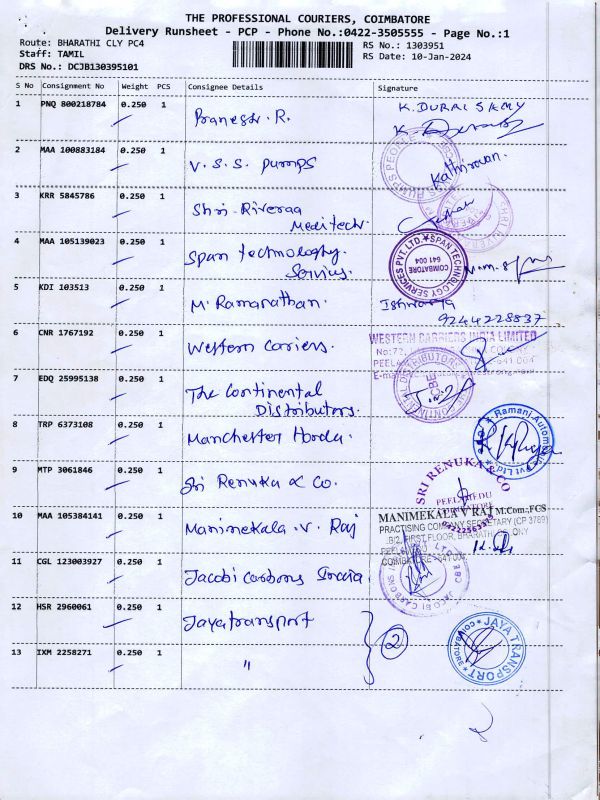 THE PROFESSIONAL COURIERS, COIMBATORE
Delivery Runsheet - PCP - Phone No.:0422-3505555 - Page No.:1
Route: BHARATHI CLY PC4
RS No.: 1303951
Staff: TAMIL
RS Date: 10-Jan-2024
DRS No.: DCJB130395101
S No Consignment No Weight PCS Consignee Details Signature
1 PNQ 800218784 0.250 1 Pranesh. R. K. DURAI SAMY
2 MAA 100883184 0.250 1 V. S. S. Pumps Kathiravan.
3 KRR 5845786 0.250 1 Shri. Riveraa
Meditech.
4 MAA 105139023 0.250 1 Span technology
Services.
SPAN TECHNOLOGY SERVICES PVT LTD.
COIMBATORE
641 004
5 KDI 103513 0.250 1 M. Ramanathan.
9244228837
6 CNR 1767192 0.250 1 Western Cariers.
WESTERN CARRIERS INDIA LIMITED
No:72,
7 EDQ 25995138 0.250 1 The Continental
Distributors.
8 TRP 6373108 0.250 1 Manchester Honda.
Ramani Automo
9 MTP 3061846 0.250 1 Sri Renuka & Co.
SRI RENUKA & CO
PEELAMEDU
10 MAA 105384141 0.250 1 Manimekala. V. Raj
MANIMEKALA V RAJ M.Com.,FCS
PRACTISING COMPANY SECRETARY (CP 3769)
FIRST FLOOR, BHARATHI
COIMBATORE
11 CGL 123003927 0.250 1 Jacobi Carbons India.
JACOBI CARBONS
12 HSR 2960061 0.250 1 Jayatransport
2
JAYA TRANSPORT
COIMBATORE
13 IXM 2258271 0.250 1 "